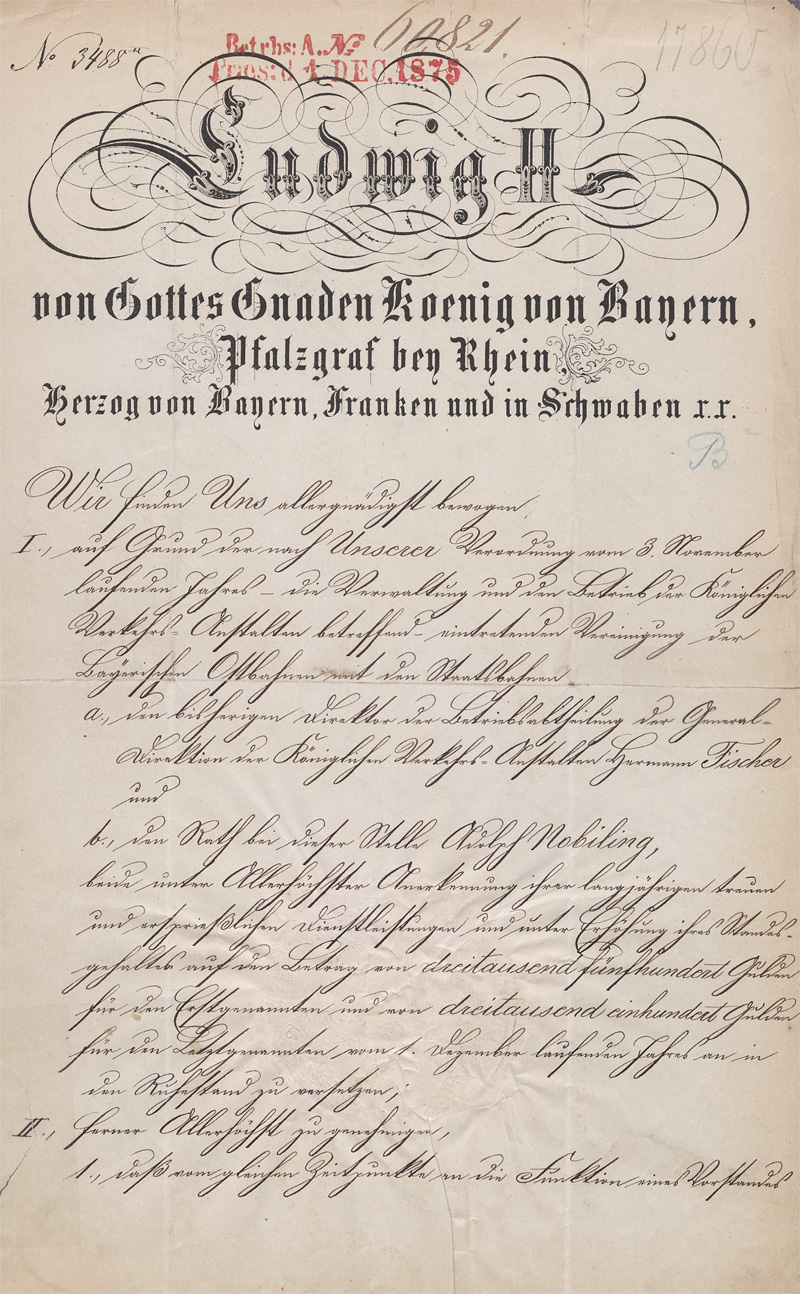 No 3488
Betrbs: A. No 60821.
Praes: d 4 DEC. 1875
17860
Ludwig II
von Gottes Gnaden Koenig von Bayern,
Pfalzgraf bey Rhein,
Herzog von Bayern, Franken und in Schwaben x.x.
B
Wir finden Uns allergnädigst bewogen,
I., auf Grund der nach Unserer Verordnung vom 3. November
laufenden Jahres – die Verwaltung und den Betrieb der Königlichen
Verkehrs-Anstalten betreffend – eintretenden Vereinigung der
Bayerischen Ostbahnen mit den Staatsbahnen
a., den bisherigen Direktor der Betriebsabtheilung der General-
Direktion der Königlichen Verkehrs-Anstalten Hermann Fischer
und
b., den Rath bei dieser Stelle Adolph Nobiling,
beide unter Allerhöchster Anerkennung ihrer langjährigen treuen
und ersprießlichen Dienstleistungen und unter Erhöhung ihres Standes-
gehaltes auf den Betrag von dreitausend fünfhundert Gulden
für den Erstgenannten und von dreitausend einhundert Gulden
für den Letztgenannten, vom 1. Dezember laufenden Jahres an in
den Ruhestand zu versetzen;
II., ferner Allerhöchst zu genehmigen,
1., daß vom gleichen Zeitpunkte an die Funktion eines Vorstandes